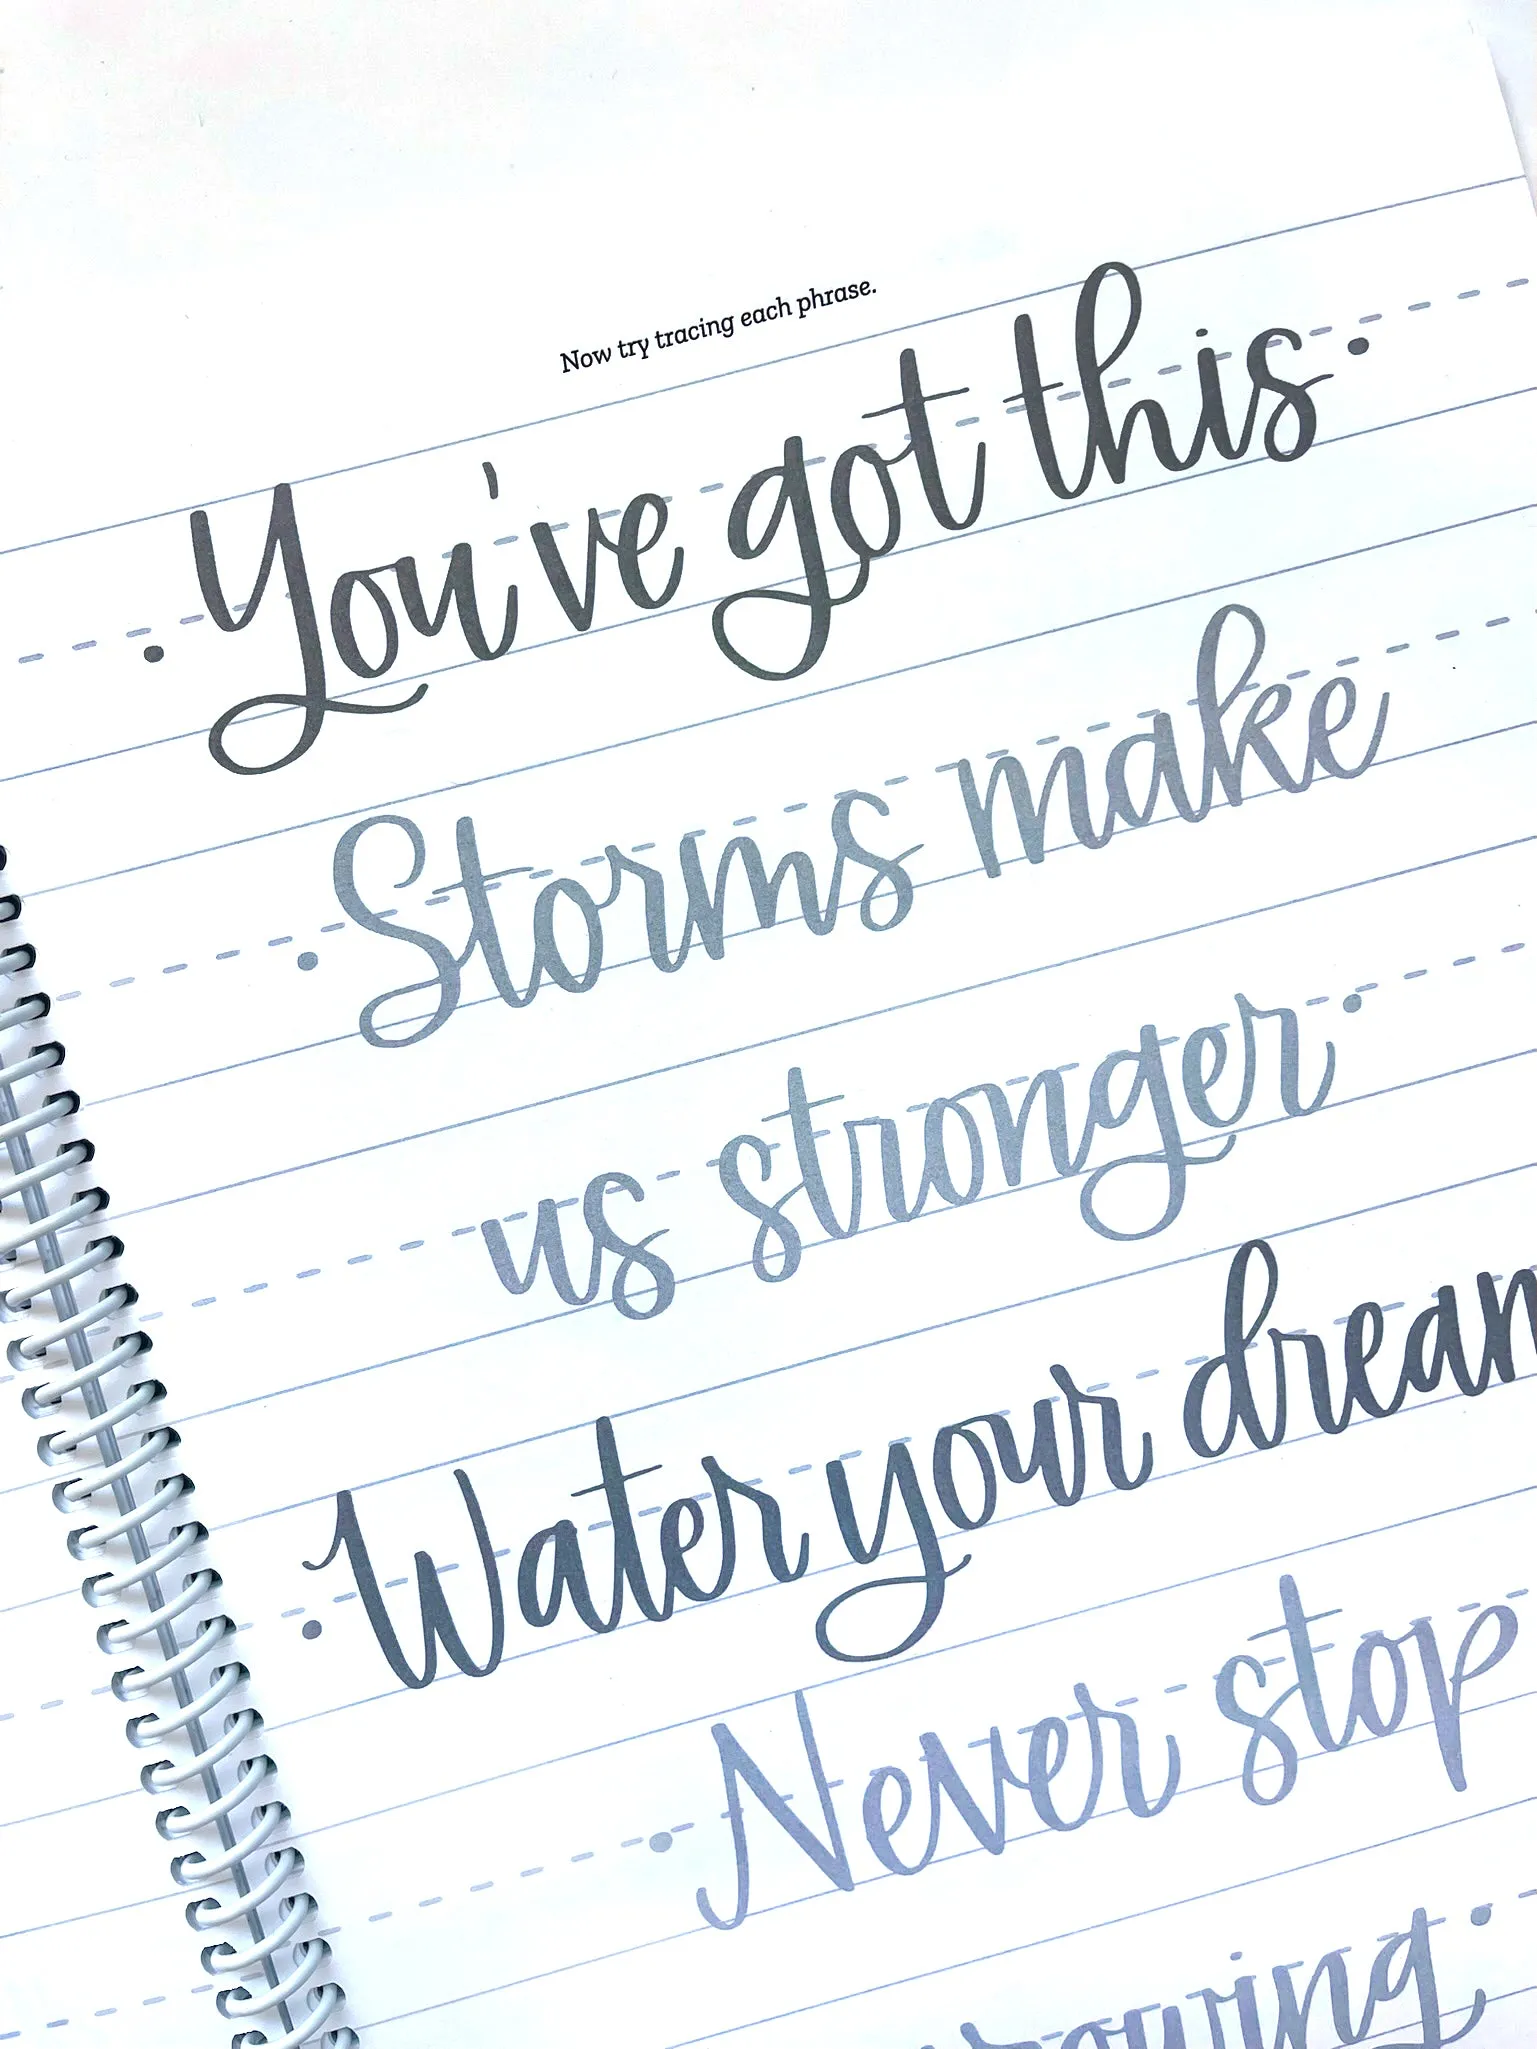 Now try tracing each phrase.
• You've got this •
• Storms make
us stronger •
• Water your
• Never stop
•